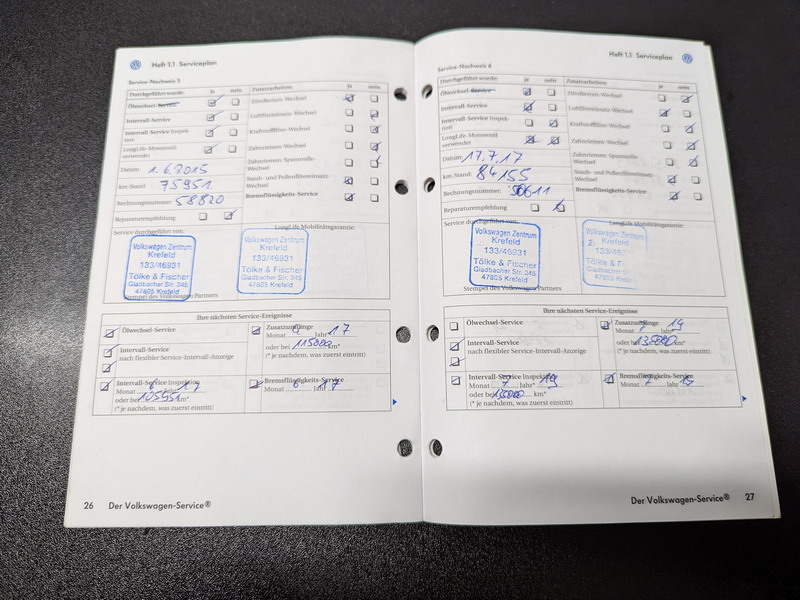 Heft 1.1 Serviceplan
Service-Nachweis 5
Durchgeführt wurde: Ja nein
Zusatzarbeiten: Ja nein
Ölwechsel-Service
Intervall-Service
Intervall-Service Inspek-
tion
LongLife-Motorenöl
verwendet
Zündkerzen-Wechsel
Luftfiltereinsatz-Wechsel
Kraftstofffilter-Wechsel
Zahnriemen-Wechsel
Zahnriemen-Spannrolle-
Wechsel
Staub- und Pollenfiltereinsatz-
Wechsel
Bremsflüssigkeits-Service
Datum: 1.6.2015
km-Stand: 75951
Rechnungsnummer: 58820
Reparaturempfehlung
Service durchgeführt von:
LongLife Mobilitätsgarantie:
Volkswagen Zentrum
Krefeld
133/46931
Tölke & Fischer
Gladbacher Str. 345
47805 Krefeld
Volkswagen Zentrum
Krefeld
133/46931
Tölke & Fischer
Gladbacher Str. 345
47805 Krefeld
Stempel des Volkswagen Partners
Ihre nächsten Service-Ereignisse
Ölwechsel-Service
Intervall-Service
nach flexibler Service-Intervall-Anzeige
Intervall-Service Inspektion
Monat 6 Jahr* 17
oder bei 105951 km*
(* je nachdem, was zuerst eintritt)
Zusatzumfänge
Monat Jahr* 17
oder bei 115000 km*
(* je nachdem, was zuerst eintritt)
Bremsflüssigkeits-Service
Monat 6 Jahr 17
26 Der Volkswagen-Service®
Heft 1.1 Serviceplan
Service-Nachweis 6
Durchgeführt wurde: Ja nein
Zusatzarbeiten: Ja nein
Ölwechsel-Service
Intervall-Service
Intervall-Service Inspek-
tion
LongLife-Motorenöl
verwendet
Zündkerzen-Wechsel
Luftfiltereinsatz-Wechsel
Kraftstofffilter-Wechsel
Zahnriemen-Wechsel
Zahnriemen-Spannrolle-
Wechsel
Staub- und Pollenfiltereinsatz-
Wechsel
Bremsflüssigkeits-Service
Datum: 17.7.17
km-Stand: 84155
Rechnungsnummer:
Reparaturempfehlung
Service durchgeführt von:
LongLife Mobilitätsgarantie:
Volkswagen Zentrum
Krefeld
133/46931
Tölke & Fischer
Gladbacher Str. 345
47805 Krefeld
Volkswagen Zentrum
Krefeld
133/46931
Tölke & F
Gladbacher
47805
Stempel des Volkswagen Partners
Ihre nächsten Service-Ereignisse
Ölwechsel-Service
Intervall-Service
nach flexibler Service-Intervall-Anzeige
Intervall-Service Inspektion
Monat 7 Jahr* 19
oder bei km*
(* je nachdem, was zuerst eintritt)
Zusatzumfänge
Monat 7 Jahr* 19
oder bei km*
(* je nachdem, was zuerst eintritt)
Bremsflüssigkeits-Service
Monat 7 Jahr 19
Der Volkswagen-Service® 27